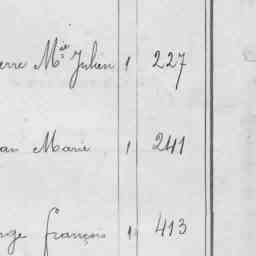 erre Mie Julien 1 227
an Marie 1 241
nge François 1 413